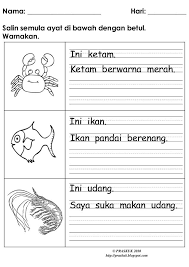 Nama: Hari:
Salin semula ayat di bawah dengan betul.
Warnakan.
Ini ketam.
Ketam berwarna merah.
Ini ikan.
Ikan pandai berenang.
Ini udang.
Saya suka makan udang.
© PRASEKK 2010